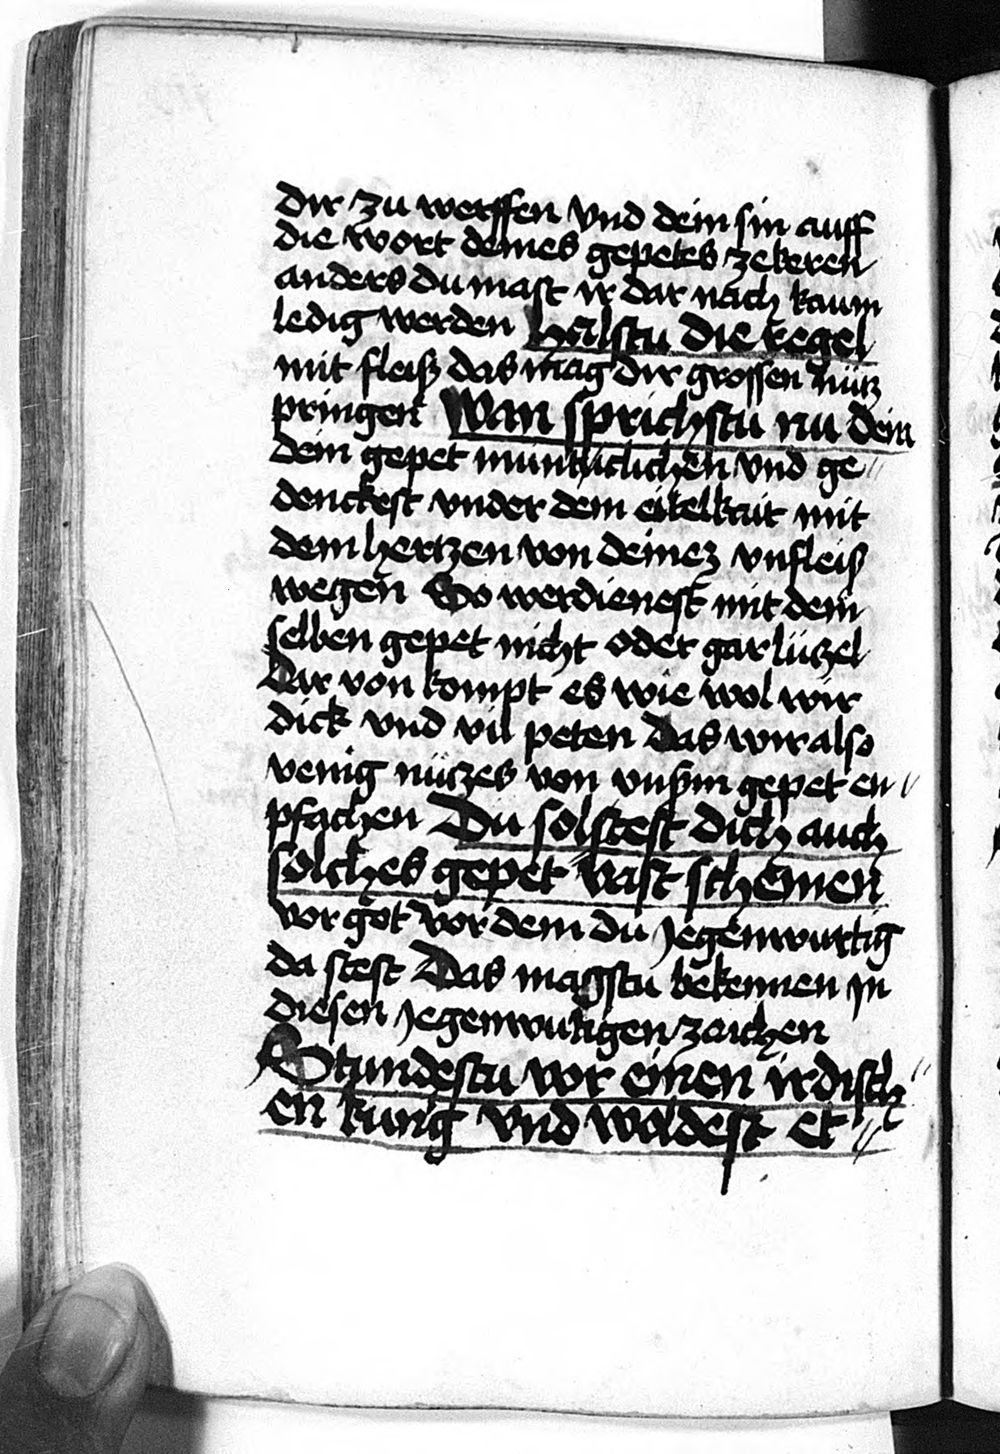 dir zu werffen vnd dein sin auff
die wort deines gepetes zekeren
anders du mast ir dar nach kaum
ledig werden haltstu die regel
mit fleiß das mag dir grossen nütz
pringen Wan sprichstu nu dein
dein gepet muntlichlichen vnd ge〃
denckest vnder dem eitelkait mit
dem hertzen von deinez vnfleiß
wegen So werdienest mit dem
selben gepet nicht oder gar lützel
Dar von kompt es wie wol wir
dick vnd vil peten Das wir also
venig nützes von vnserm gepet en〃
pfachen Du solstest dich auch
solches gepet vast schemen
vor got vor dem du jegenwurtig
da stest Das magstu bekennen jn
diesen jegenwurtigen zaichen
Stundestu vor einen irdisch〃
en kunig vnd woldest et〃